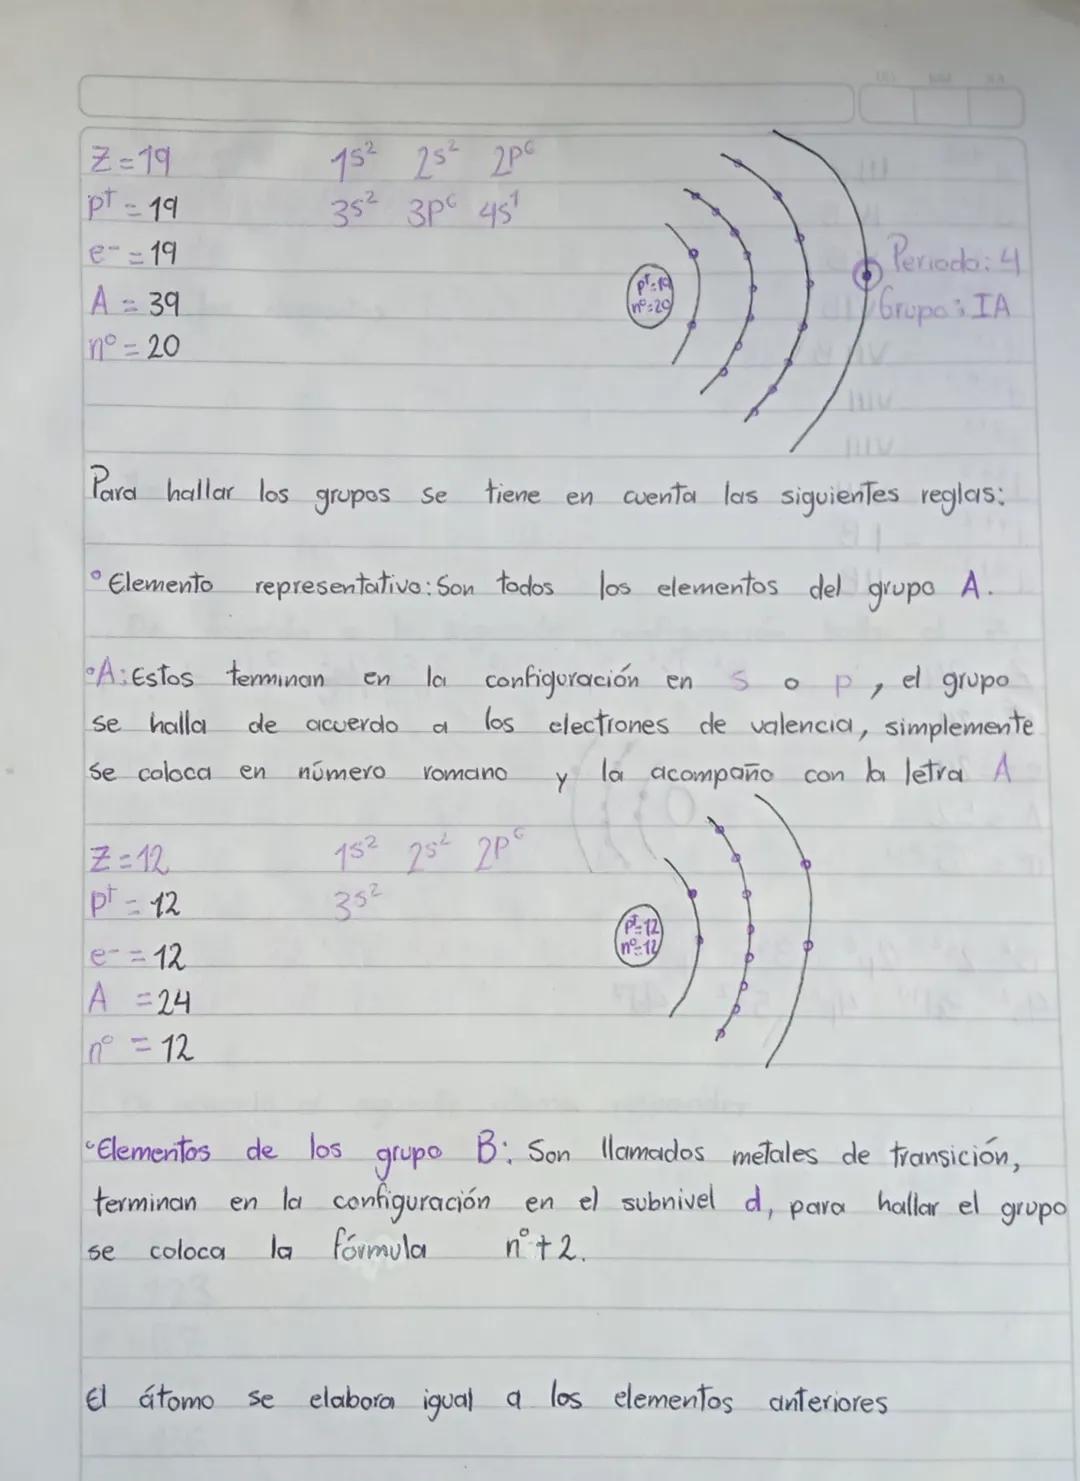 Z = 19 1s² 2s² 2p⁶
p⁺ = 19 3s² 3p⁶ 4s¹
e⁻ = 19
A = 39
n° = 20
p⁺=19
n°=20
Periodo: 4
Grupo: IA
Para hallar los grupos se tiene en cuenta las siguientes reglas:
° Elemento representativo: Son todos los elementos del grupo A.
°A: Estos terminan en la configuración en s o p, el grupo
se halla de acuerdo a los electrones de valencia, simplemente
se coloca en número romano y la acompaño con la letra A
Z = 12 1s² 2s² 2p⁶
p⁺ = 12 3s²
e⁻ = 12
A = 24
n° = 12
p⁺=12
n°=12
°Elementos de los grupo B: Son llamados metales de transición,
terminan en la configuración en el subnivel d, para hallar el grupo
se coloca la fórmula n° + 2.
El átomo se elabora igual a los elementos anteriores